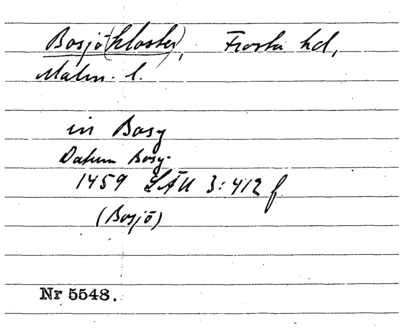 Bosjö(kloster), Frosta hd,
Malm. l.
in Bosy
Datum Bosy.
1459 LÄU 3:412 f
(Bosjö)
Nr 5548.